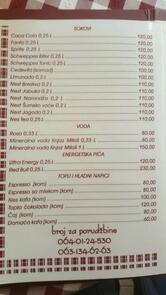 SOKOVI
Coca Cola 0,25 l 120,00
Fanta 0,25 l 120,00
Sprite 0,25 l 120,00
Schweppes Bitter 0,25 l 120,00
Schweppes Tonic 0,25 l 120,00
Ceđevita (komad) 100,00
Limunada 0,2 l 100,00
Next Breskva 0,2 l 110,00
Next Jabuka 0,2 l 110,00
Next Narandža 0,2 l 110,00
Next Šumsko voće 0,2 l 110,00
Next Jagoda 0,2 l 110,00
Nes Tea 0,25 l 110,00
VODA
Rosa 0,33 l 80,00
Mineralna voda Knjaz Miloš 0,33 l 80,00
Mineralna voda Knjaz Miloš 1 l 150,00
ENERGETSKA PIĆA
Ultra Energy 0,25 l 120,00
Red Bull 0,25 l 230,00
TOPLI I HLADNI NAPICI
Espresso (kom) 80,00
Espresso sa mlekom (kom) 80,00
Nes kafa (kom) 100,00
Topla čokolada (kom) 120,00
Čaj (kom) 80,00
Domaća kafa (kom) 60,00
broj za porudžbine
064-01-24-530
063-134-62-63